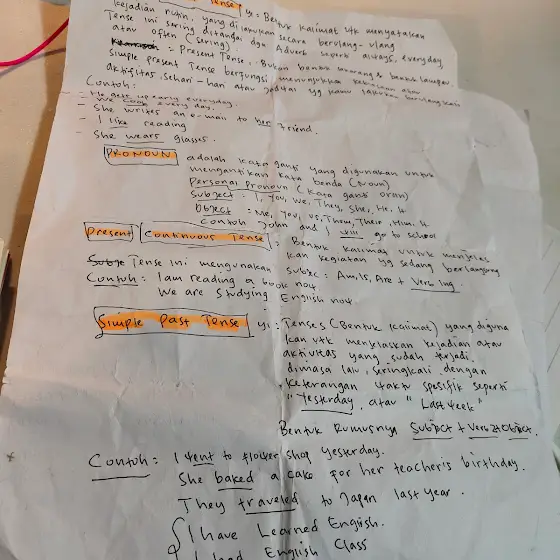 Tense yi: Bentuk kalimat utk menyatakan
kejadian rutin, yang dilakukan secara berulang-ulang
Tense ini sering ditandai dgn Adverb seperti always, everyday
atau often (sering).
= Present Tense, Bukan bentuk sekarang & bentuk lampau
simple present Tense berfungsi menunjukkan kebiasaan atau
aktifitas sehari-hari atau jadwal yg kamu lakukan berulang kali
Contoh:
- He gets up early everyday.
- We cook every day.
- She writes an e-mail to her friend.
- I like reading
- She wears glasses.
PRONOUN adalah kata ganti yang digunakan untuk
menggantikan kata benda (Noun)
Personal Pronoun (kata ganti oran)
Subject: I, You, We, They, She, He, It
Object: Me, You, Us, Them, Him, It
Contoh John and I will go to school
Present Continuous Tense: Bentuk kalimat untuk menjelas
kan kegiatan yg sedang berlangsung
Tense ini mengunakan Subjec: Am, Is, Are + Verb ing.
Contoh: I am reading a book now
We are studying English now.
Simple Past Tense yi: Tenses (Bentuk kalimat) yang diguna
kan utk menjelaskan kejadian atau
aktivitas yang sudah terjadi
dimasa lalu, seringkali dengan
keterangan waktu spesifik seperti
"Yesterday, atau "Last week"
Bentuk Rumusnya Subject + Verb 2 + Object.
Contoh: I went to flower shop yesterday.
She baked a cake for her teacher's birthday.
They traveled to Japan last year.
I have Learned English.
I had English Class